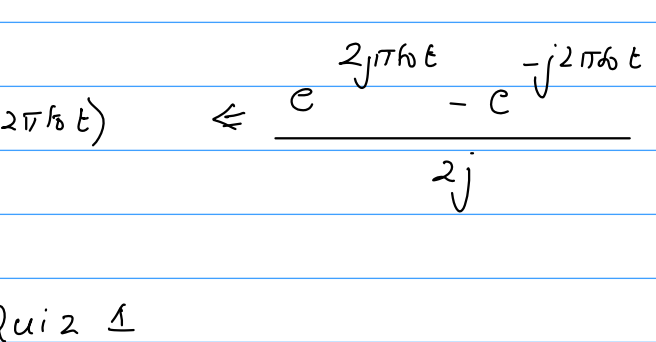 2πf₀t) ⩽ e^{2jπf₀t} - e^{-j2πf₀t}
2j
Quiz 1